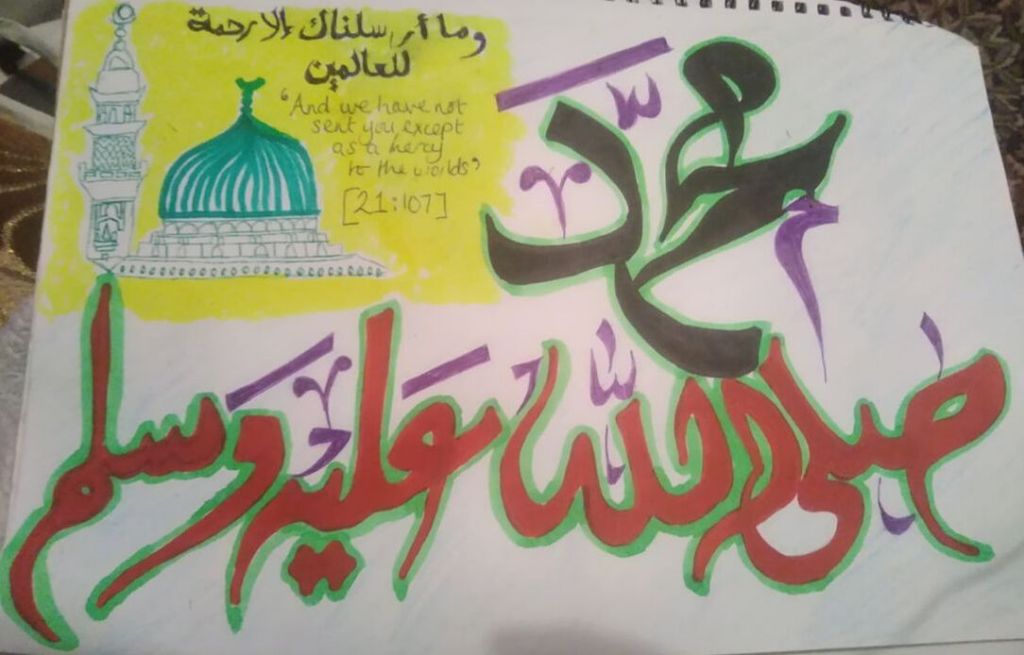 وما أرسلناك إلا رحمة
للعالمين
'And we have not
sent you except
as a mercy
to the worlds'
[21:107]
محمد
صلى الله عليه وسلم